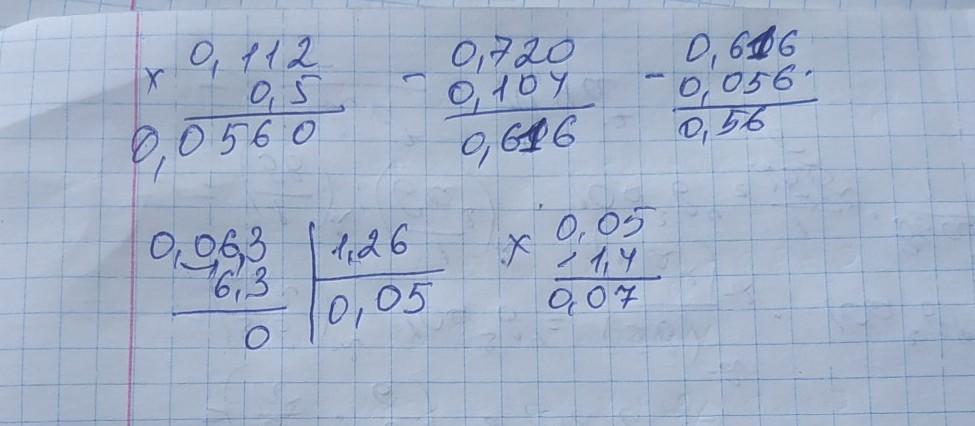 × 0,112
0,5
0,0560
- 0,720
0,104
0,616
- 0,616
0,056
0,56
0,06,3 | 1,26
6,3 | 0,05
0
× 0,05
1,4
0,07